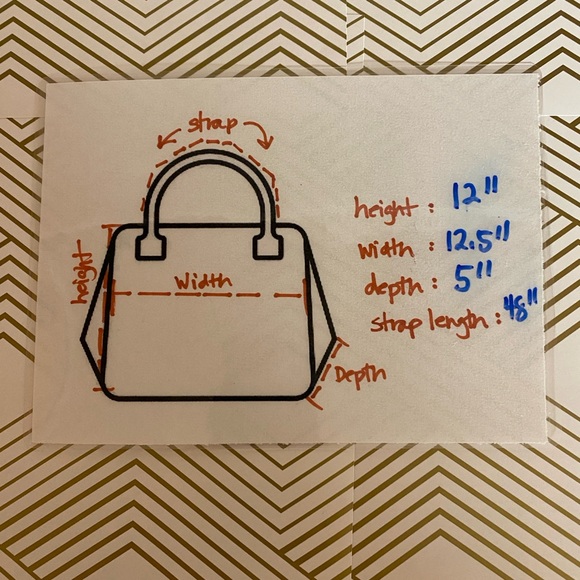 strap
height
width
Depth
height : 12"
width : 12.5"
depth : 5"
strap length : 48"